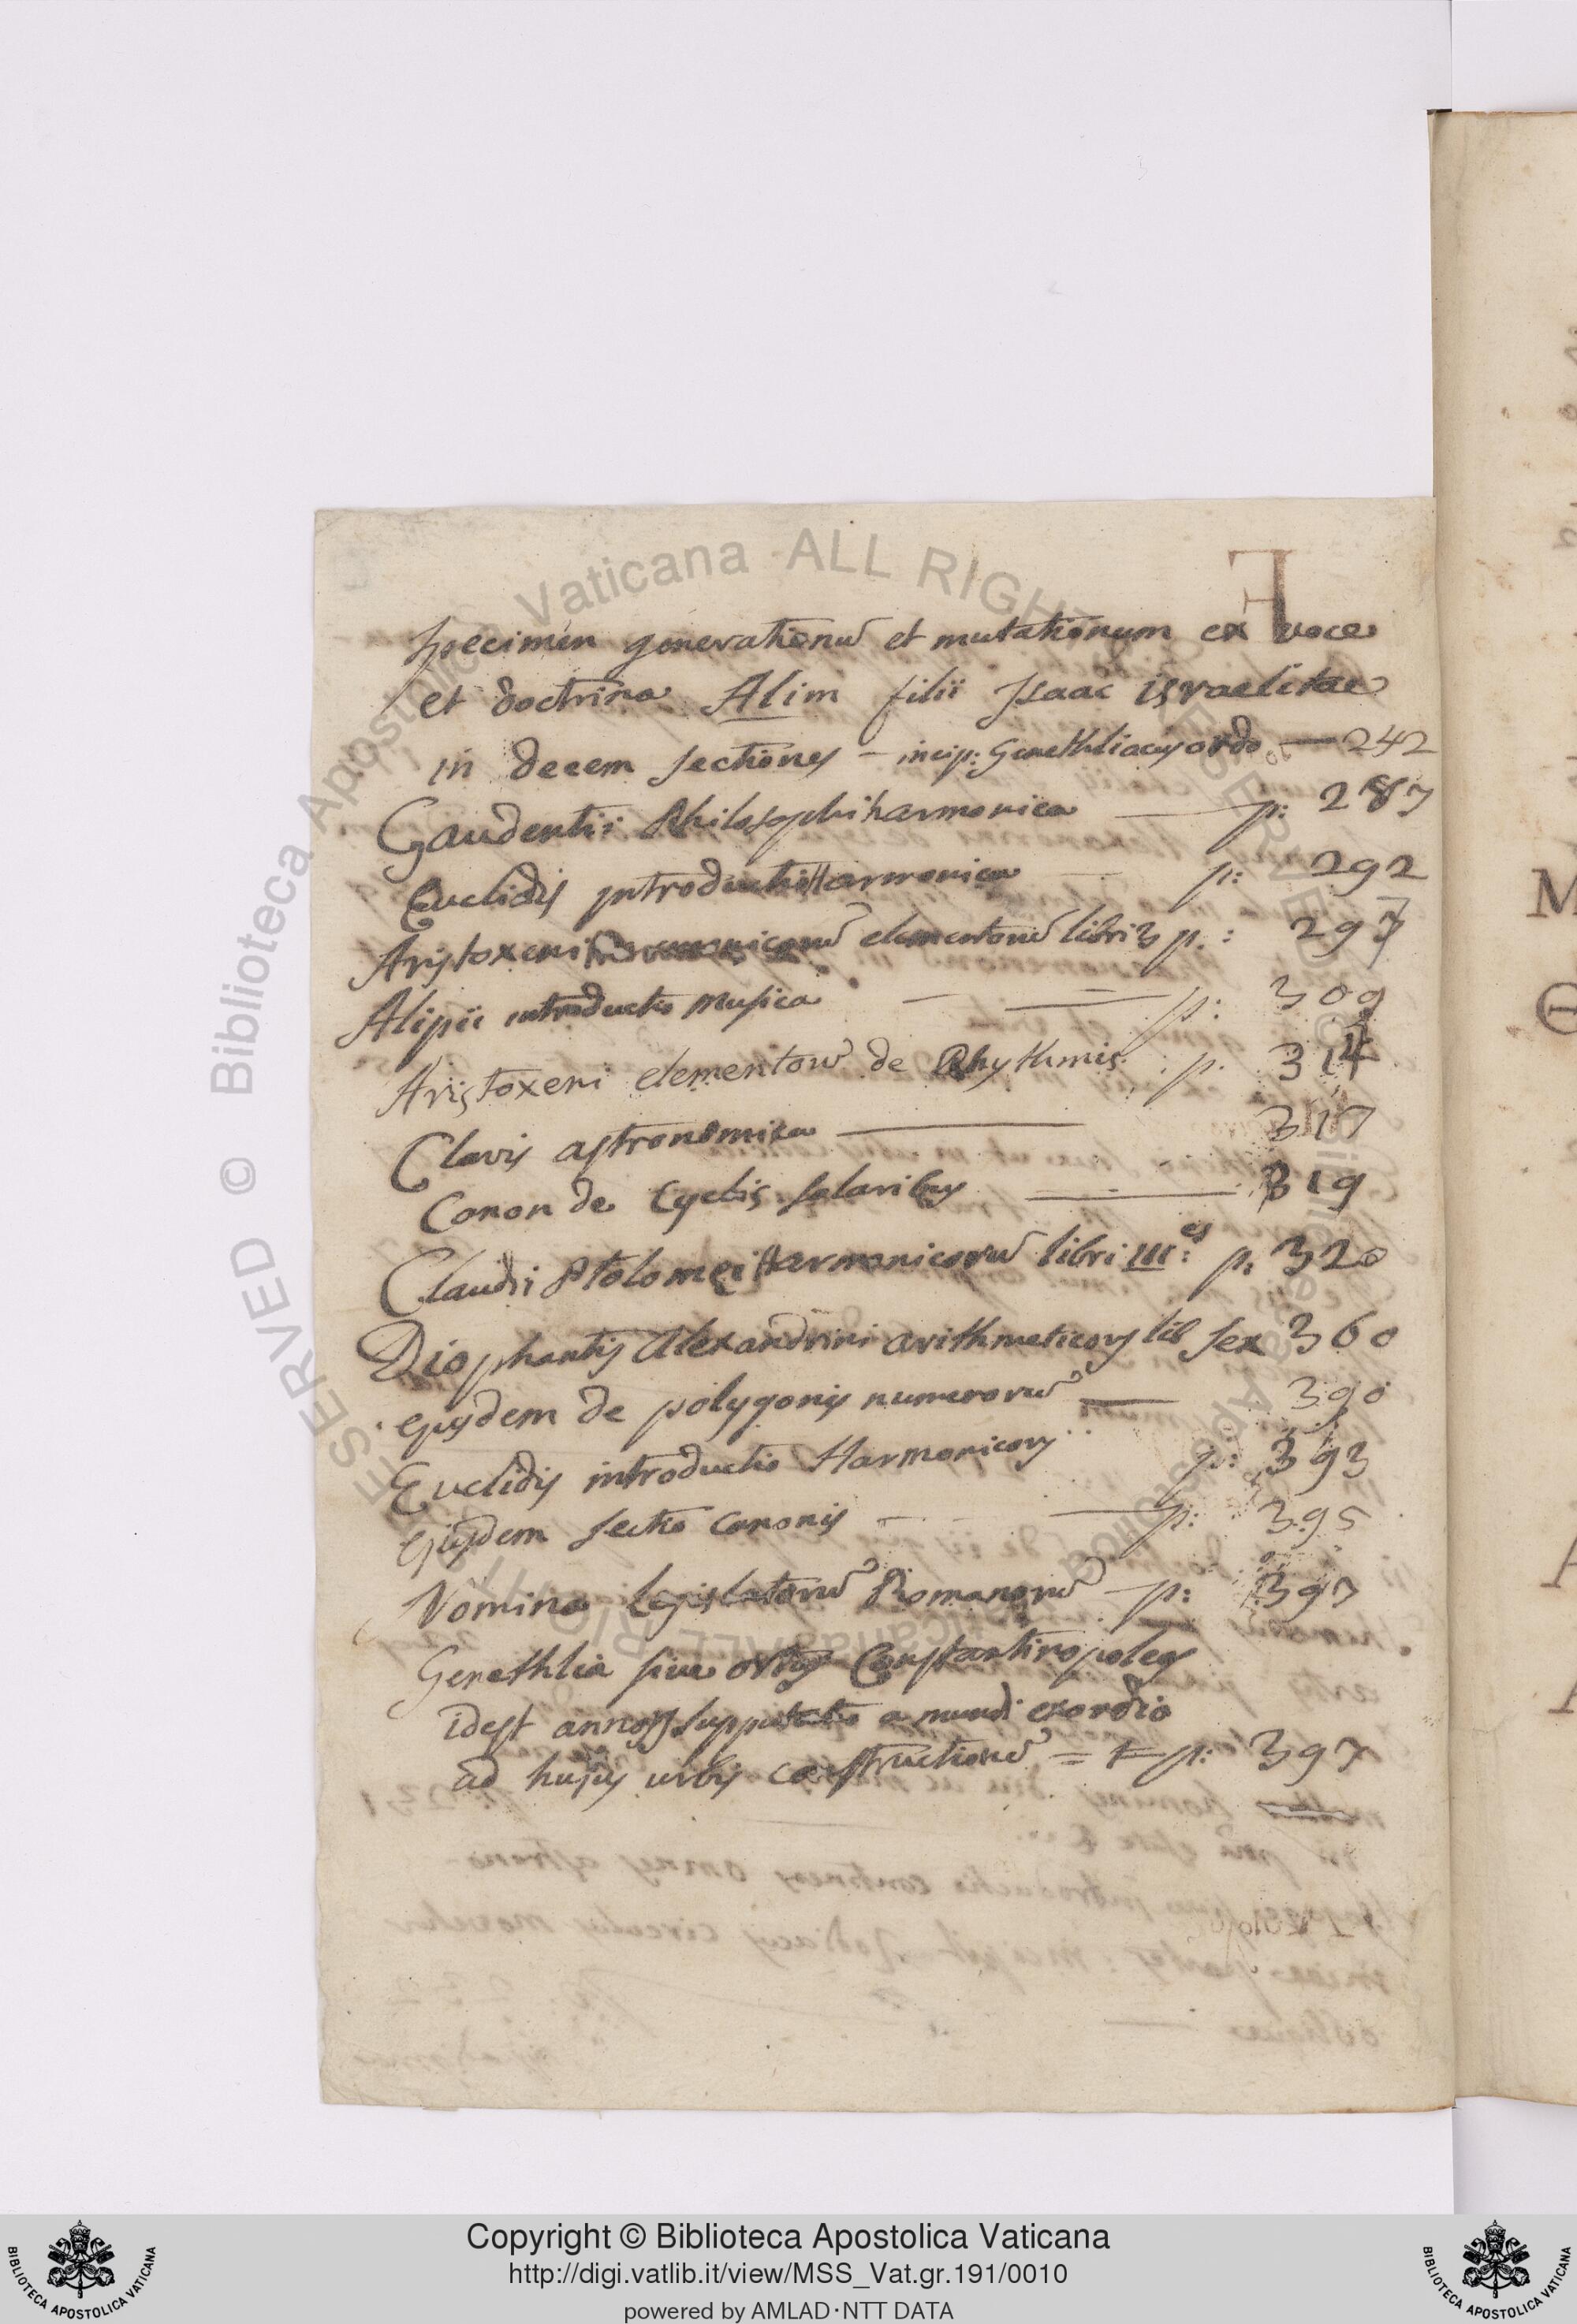 Specimen generationū et mutationum ex voce
et doctrina Alim filii Isaac israelitae
in decem sectiones – incip: Genethliacus ordo — 242
Gaudentii Philosophi harmonica — p: 287
Euclidis introductio Harmonica — p: 292
Aristoxeni Harmonicorū elementorū libri 3 p.: 297
Alipii introductio Musica — p: 309
Aristoxeni elementorū de Rhythmis . p. 314
Clavis astronomica — 317
Canon de Cyclis solaribus — 319
Claudii Ptolomei Harmonicorū libri III:es p: 320
Diophantis Alexandrini arithmeticorum lib sex 360
ejusdem de polygonis numerorū — 390
Euclidis introductio Harmonicorum p: 393
Ejusdem sectio canonis — p: 395
Nomina Legislatorū Romanorū — p: 397
Genethlia sive ortus Constantinopoleos
idest annorum supputatio a mundi exordio
ad hujus urbis constructionē = p: 397
Copyright © Biblioteca Apostolica Vaticana
http://digi.vatlib.it/view/MSS_Vat.gr.191/0010
powered by AMLAD·NTT DATA